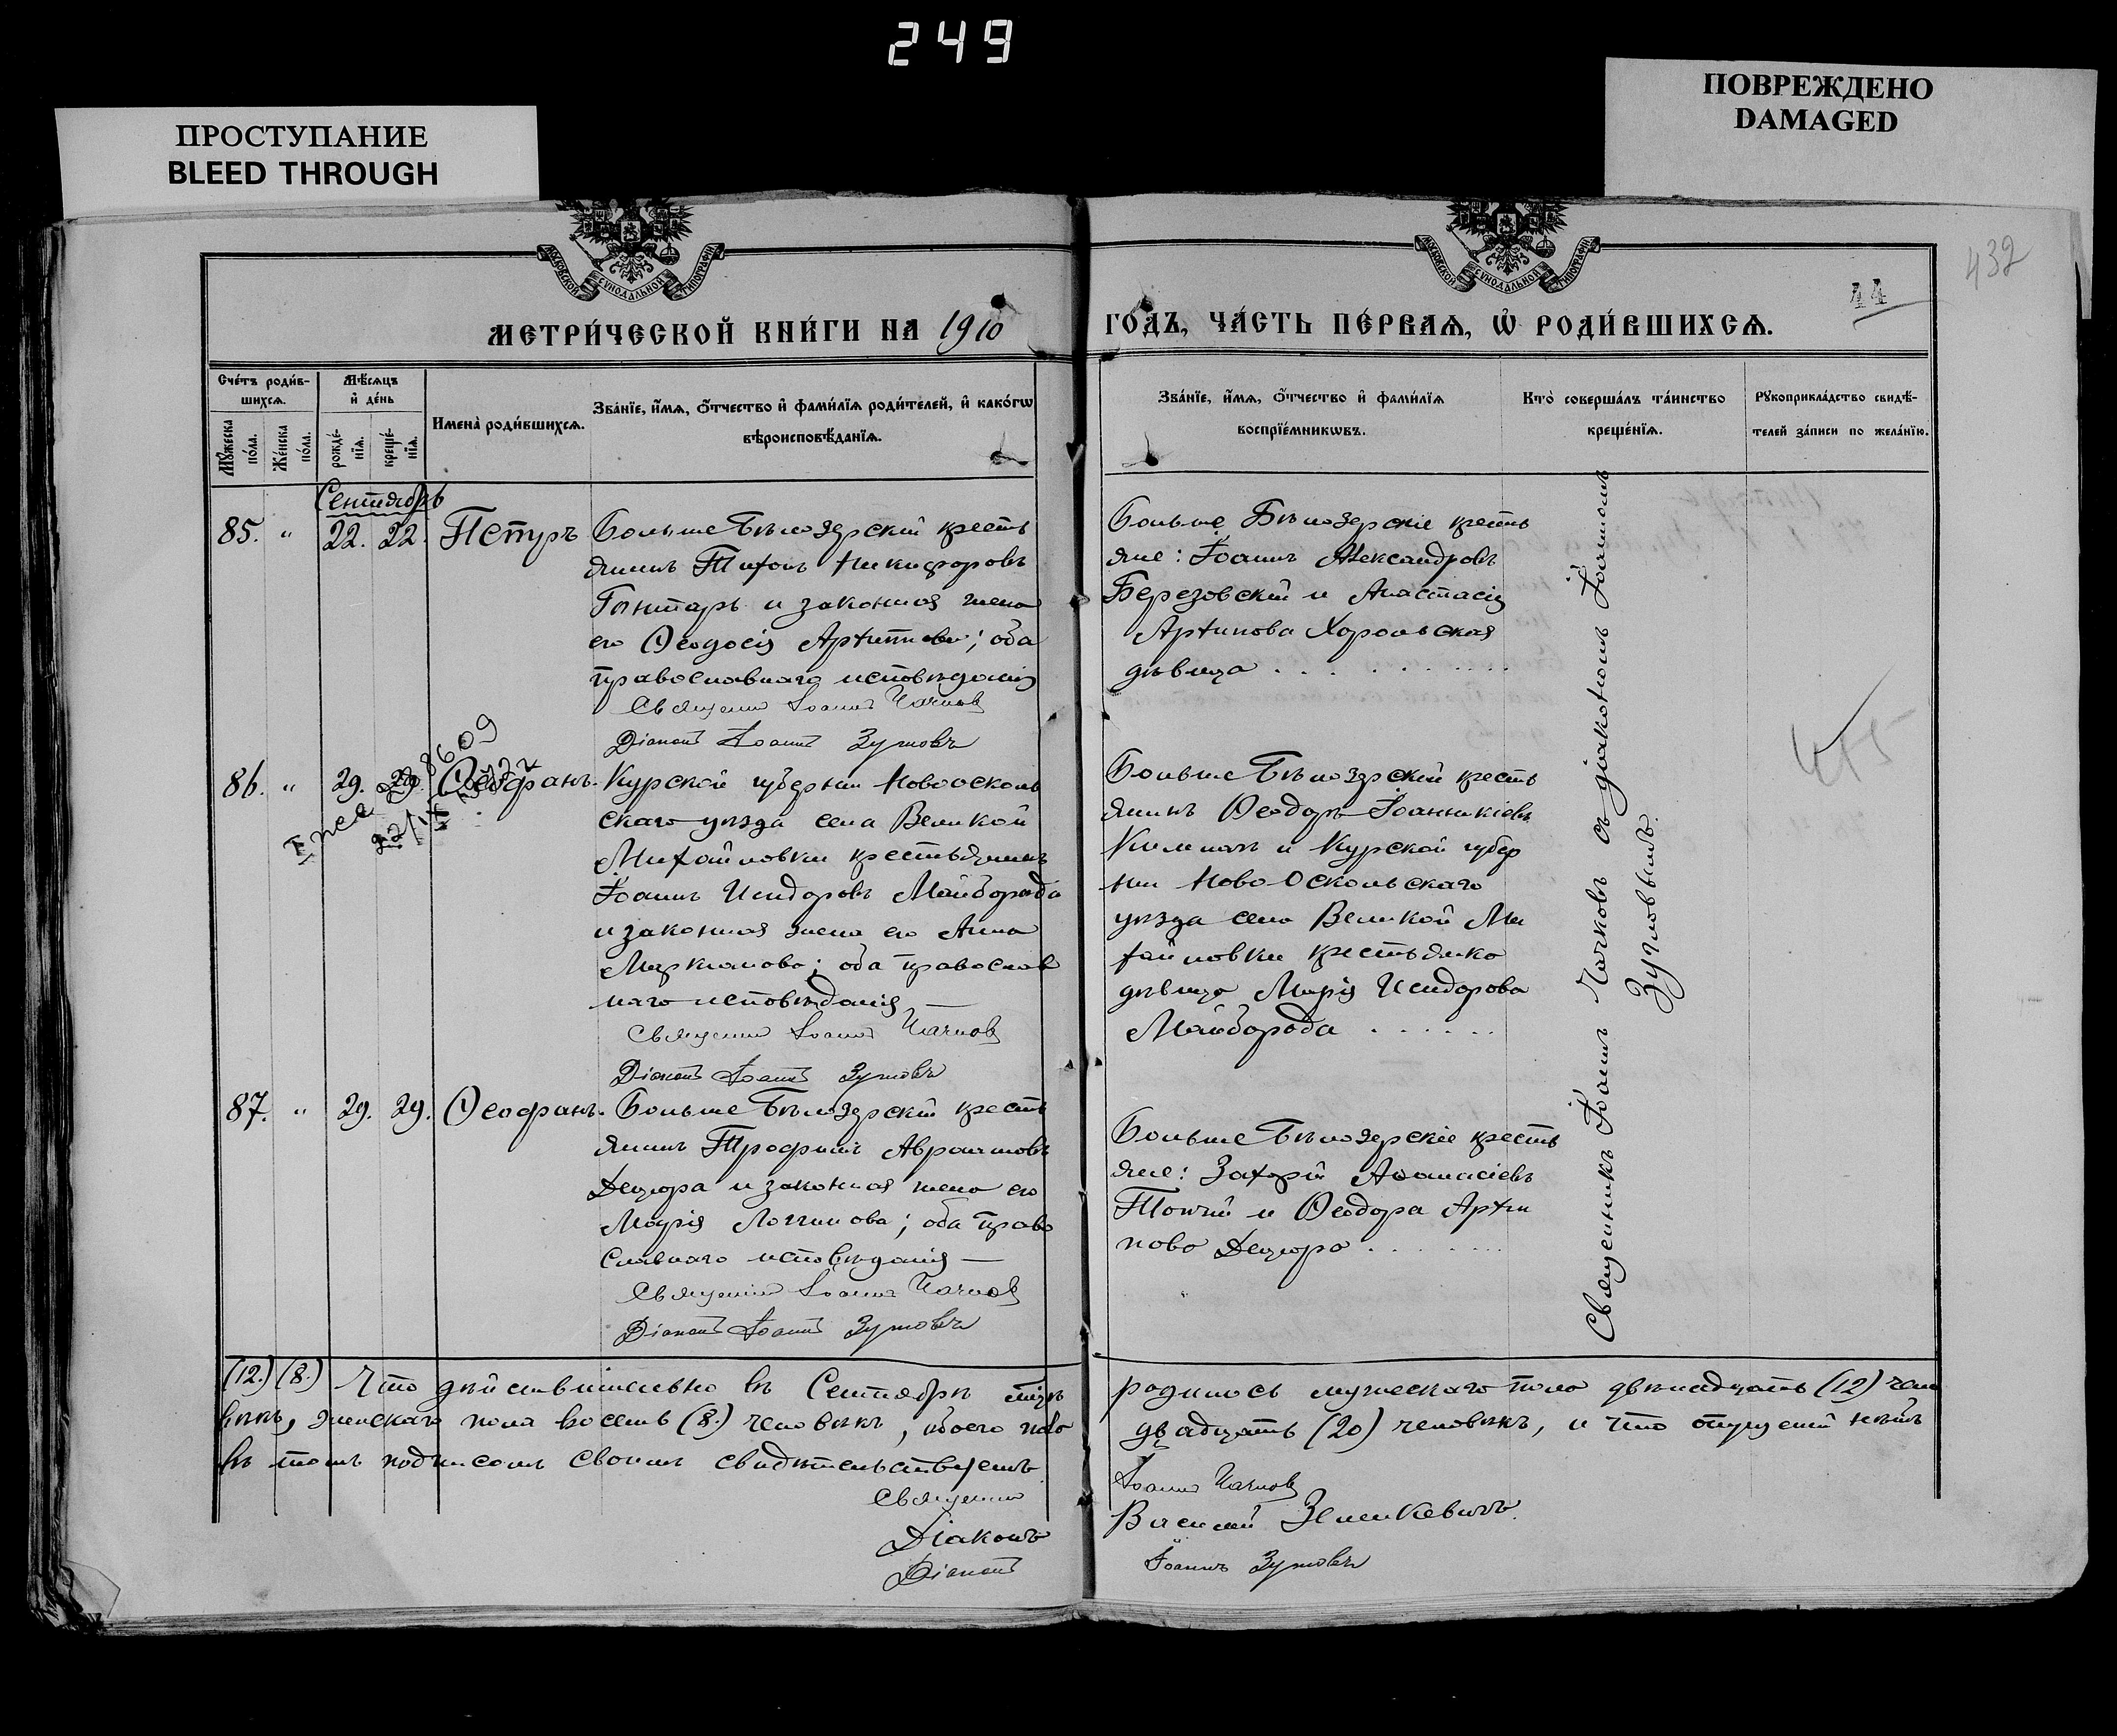 249
ПРОСТУПАНИЕ
BLEED THROUGH
ПОВРЕЖДЕНО
DAMAGED
МОСКОВСКОЙ СѴНОДАЛЬНОЙ ТИПОГРАФІИ
МОСКОВСКОЙ СѴНОДАЛЬНОЙ ТИПОГРАФІИ
432
44
МЕТРИ́ЧЕСКОЙ КНИ́ГИ НА 1910
ГО́ДЪ, ЧА́СТЬ ПЕ́РВАѦ, Ѡ РОДИ́ВШИХСѦ.
Сче́тъ роди́в-
шихсѧ.
Мѣ́сѧцъ
и҆ де́нь
Мꙋ́жеска по́ла.
Же́нска по́ла.
рожде́-
нїѧ.
креще́-
нїѧ.
Имена̀ роди́вшихсѧ.
Зва́нїе, и҆́мѧ, ѻ҆́тчество и҆ фами́лїѧ роди́телей, и҆ како́гѡ
вѣроисповѣ́данїѧ.
Зва́нїе, и҆́мѧ, ѻ҆́тчество и҆ фами́лїѧ
воспрїе́мникѡвъ.
Кто̀ соверша́лъ та́инство
креще́нїѧ.
Рꙋкоприкла́дство свидѣ́-
телей за́писи по жела́нїю.
Сентябрь
85. " 22. 22. Петръ
Больше Бѣлозерскій кресть
янинъ Тихонъ Никифоровъ
Гонтарь и законная жена
его Ѳеодосія Архипова; оба
православнаго исповѣданія
Священни Іоаннъ Чачков
Діаконъ Іоаннъ Зумовъ
Больше Бѣлозерскіе кресть
яне: Іоаннъ Александровъ
Березовскій и Анастасія
Архипова Хорольская
дѣвица . . . .
86. " 29. 29. Ѳеофанъ.
Курской губерніи Новоосколь
скаго уѣзда села Великой
Михайловки крестьянинъ
Іоаннъ Исидоровъ Майборода
и законная жена его Анна
Маркіанова; оба православ
наго исповѣданія —
Священни Іоаннъ Чачков
Діаконъ Іоаннъ Зумовъ
Больше Бѣлозерскій кресть
янинъ Ѳеодоръ Іоанникіевъ
и Курской губер
ніи Ново Оскольскаго
уѣзда села Великой Ми
хайловки крестьянка
дѣвица Марія Исидорова
Майборода . . . . . .
87. " 29. 29. Ѳеофанъ.
Больше Бѣлозерскій кресть
янинъ Трофимъ Авраамовъ
Децюра и законная жена его
Марія Логгинова; оба право
славнаго исповѣданія —
Священни Іоаннъ Чачков
Діаконъ Іоаннъ Зумовъ
Больше Бѣлозерскіе кресть
яне: Захарій Аѳанасіевъ
и Ѳеодора Архи
пова Децюра . . . .
Священникъ Іоаннъ Чачковъ съ діакономъ Іоанномъ
Зумовымъ.
(12.) (8.) Что дѣйствительно въ Сентябрѣ мѣс родилось мужескаго пола двѣнадцать (12) чело
вѣкъ, женскаго пола восемь (8.) человѣкъ, обоего пола двадцать (20) человѣкъ, и что опущеній нѣтъ
въ томъ подписомъ своимъ свидѣтельствуемъ.
Священни Іоаннъ Чачков
Діаконъ Василій Зенкевичъ.
Діаконъ Іоаннъ Зумовъ